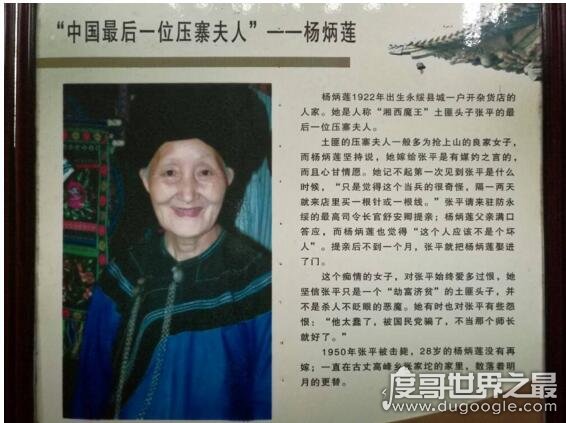 “中国最后一位压寨夫人”——杨炳莲
杨炳莲1922年出生永绥县城一户开杂货店的
人家。她是人称“湘西魔王”土匪头子张平的最
后一位压寨夫人。
土匪的压寨夫人一般多为抢上山的良家女子，
而杨炳莲坚持说，她嫁给张平是有媒妁之言的，
而且心甘情愿。她记不起第一次见到张平是什么
时候，“只是觉得这个当兵的很奇怪，隔一两天
就来店里买一根针或一根线。”张平请来驻防永
绥的最高司令长官舒安卿提亲；杨炳莲父亲满口
答应，而杨炳莲也觉得“这个人应该不是个坏
人”。提亲后不到一个月，张平就把杨炳莲娶进
了门。
这个痴情的女子，对张平始终爱多过恨，她
坚信张平只是一个“劫富济贫”的土匪头子，并
不是杀人不眨眼的恶魔。她有时也对张平有些怨
恨：“他太蠢了，被国民党骗了，不当那个师长
就好了。”
1950年张平被击毙，28岁的杨炳莲没有再
嫁；一直在古丈高峰乡张家坨的家里，数落着明
月的更替。
度哥世界之最
www.dugoogle.com